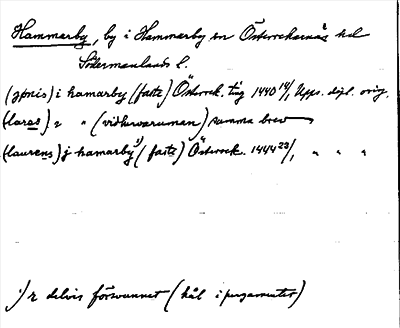 Hammarby, by i Hammarby sn Österrekarnes hd
Södermanlands l.
(jonis) i hamarby (faste) Österrek. ting 1440 14/1 Upps. dipl. orig.
(laras) " " (vidherwaruman) samma brev
(laurens) j hamarby¹) (faste) Österrek. 1444 23/1 " " "
¹) r delvis försvunnet (hål i pergamentet)